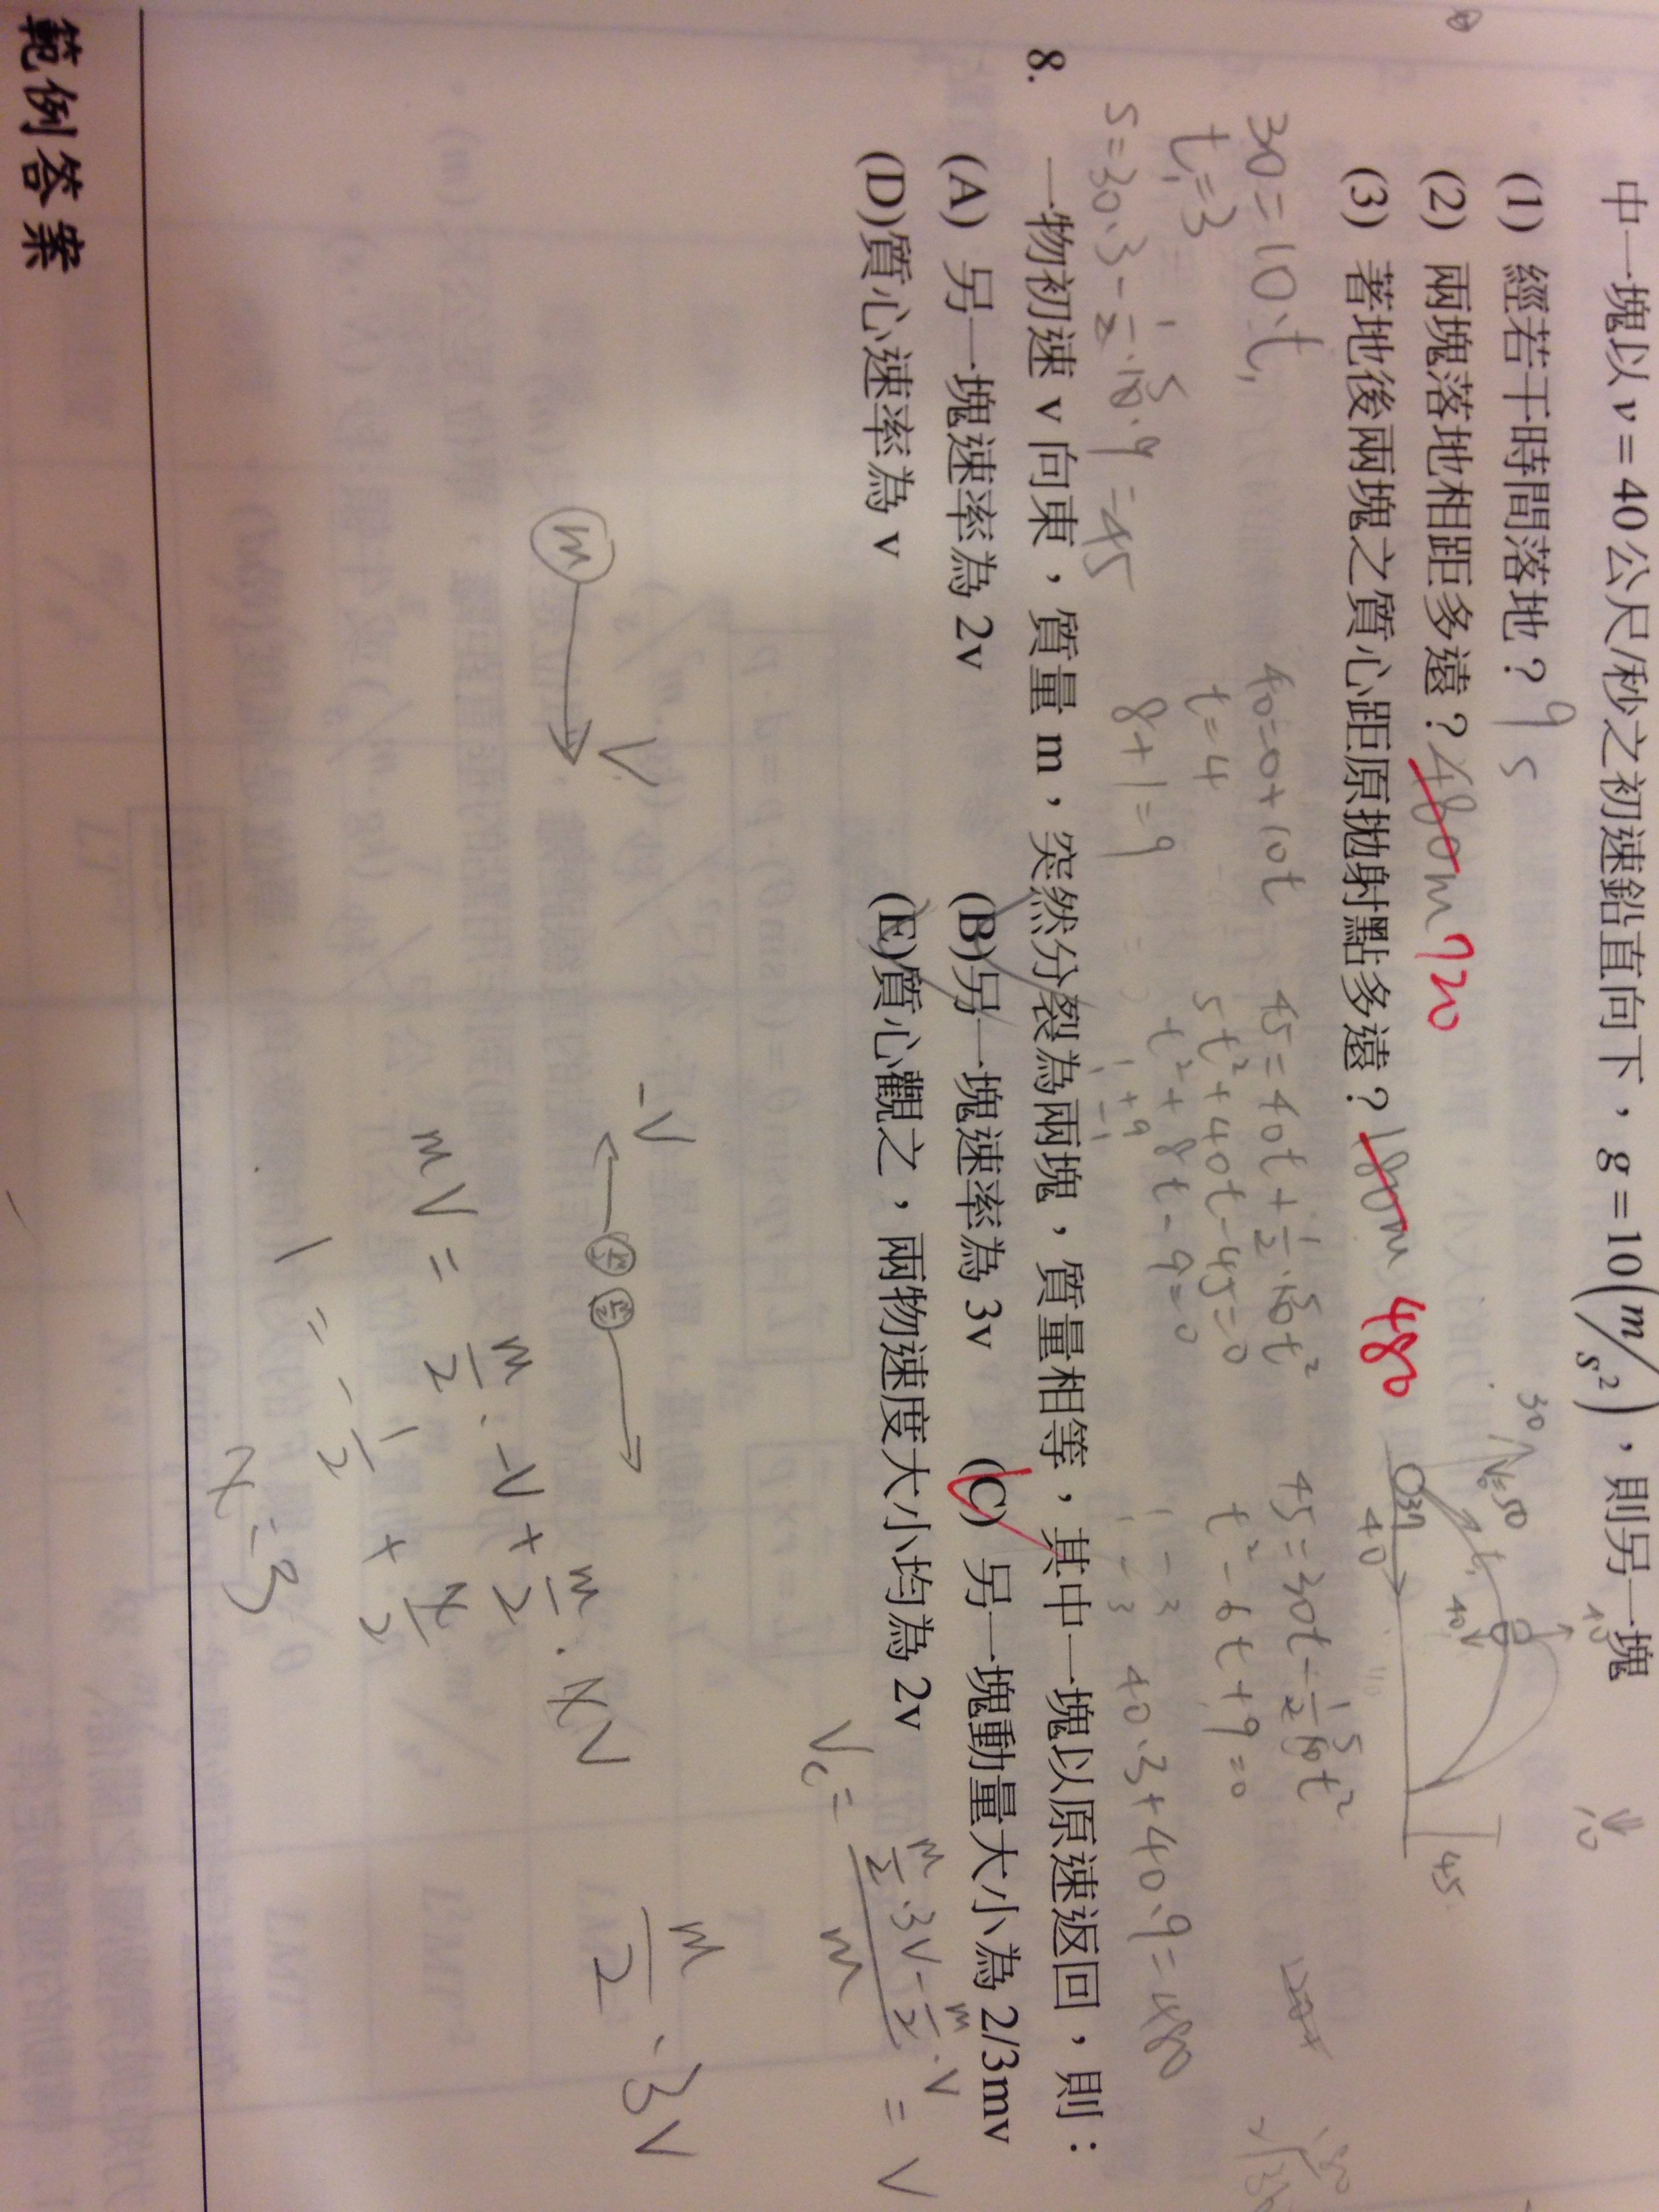 中一塊以 v = 40 公尺/秒之初速鉛直向下，g = 10(m/s²)，則另一塊
(1) 經若干時間落地？ 9 s
(2) 兩塊落地相距多遠？ 480m 920
(3) 著地後兩塊之質心距原拋射點多遠？ 180m 480
30 N V₀=50
40
45
30 = 10·t₁
t₁ = 3
S = 30·3 - 1/2·10·9 = 45
5
40 = 0 + 10t
t = 4
8+1=9
45 = 40t + 1/2·10t²
5
5t² + 40t - 45 = 0
t² + 8t - 9 = 0
1 +9
1 -1
45 = 30t - 1/2 10t²
5
t² - 6t + 9 = 0
1 -3
1 -3
40·3 + 40·9 = 480
8. 一物初速 v 向東，質量 m，突然分裂為兩塊，質量相等，其中一塊以原速返回，則：
(A) 另一塊速率為 2v (B)另一塊速率為 3v (C) 另一塊動量大小為 2/3mv
(D)質心速率為 v (E)質心觀之，兩物速度大小均為 2v
Vc = (m/2·3V - m/2·V)/m = V
m V
-V
m/2·3V
mV = m/2·-V + m/2·xV
1 = -1/2 + x/2
x = 3
範例答案